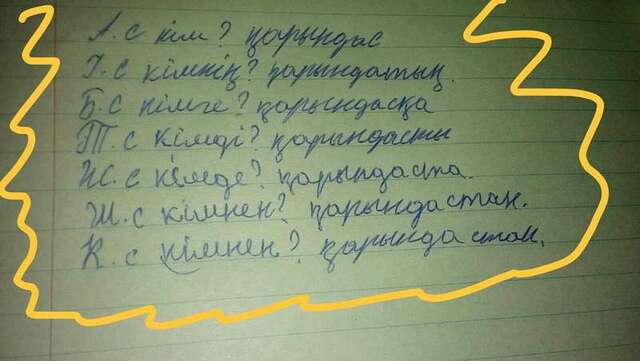 А. с кім? қарындас
І. с кімнің? қарындастың.
Б. с кімге? қарындасқа
Т. с кімді? қарындасты
Ж. с кімде? қарындаста.
Ш. с кімнен? қарындастан.
К. с кімнен? қарындастан.